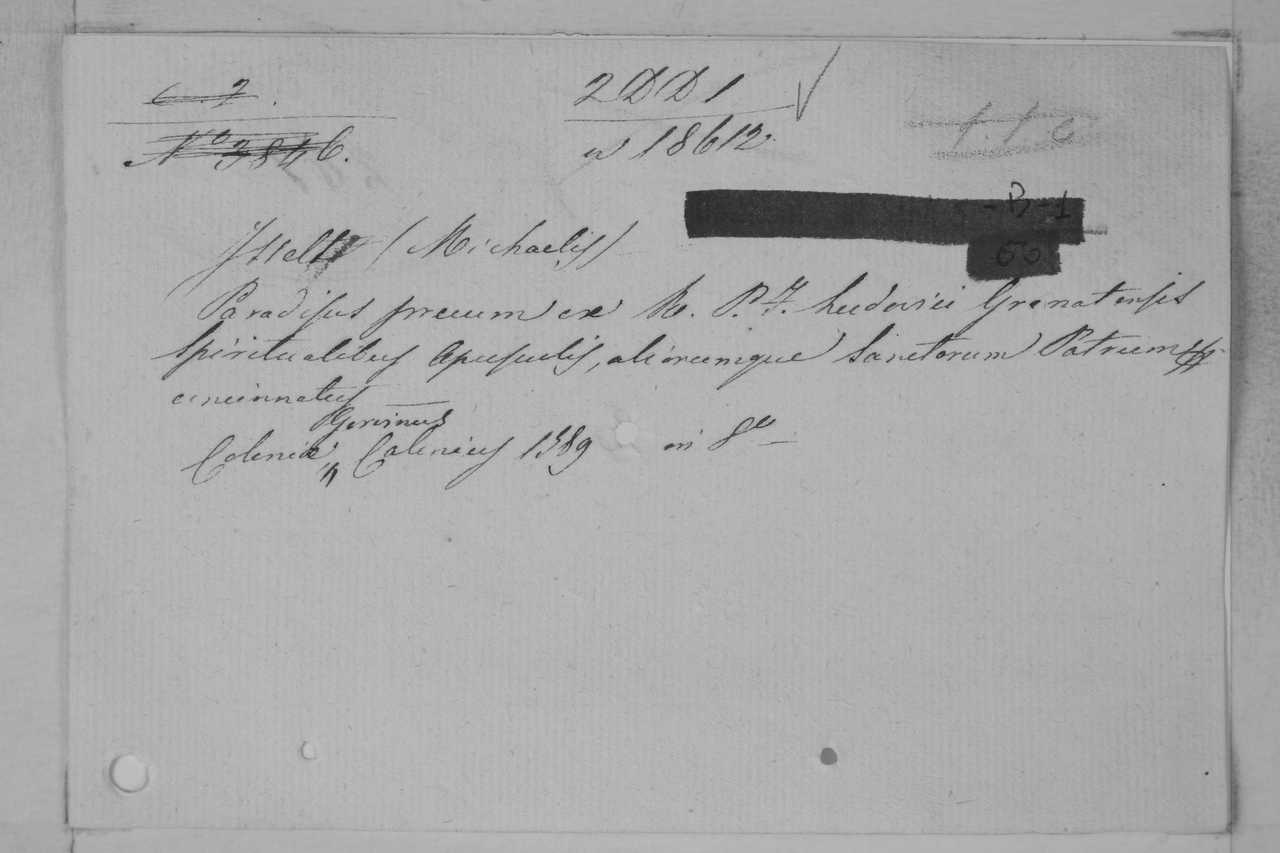 C. 7.
2 DD 1
N° 3846.
n 18612.
1.1 c
-B-1
60
Isselt (Michaelis)
Paradisus precum ex R. P. F. Ludovici Granatensis
spiritualibus Opusculis, aliorumque Sanctorum Patrum
concinnatus
Gervinus
Coloniæ, Calenius 1589 in 8°